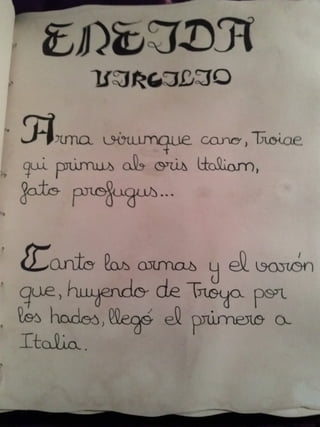 ENEIDA
VIRGILIO
Arma virumque cano, Troiae
qui primus ab oris Italiam,
fato profugus...
Canto las armas y el varón
que, huyendo de Troya por
los hados, llegó el primero a
Italia.